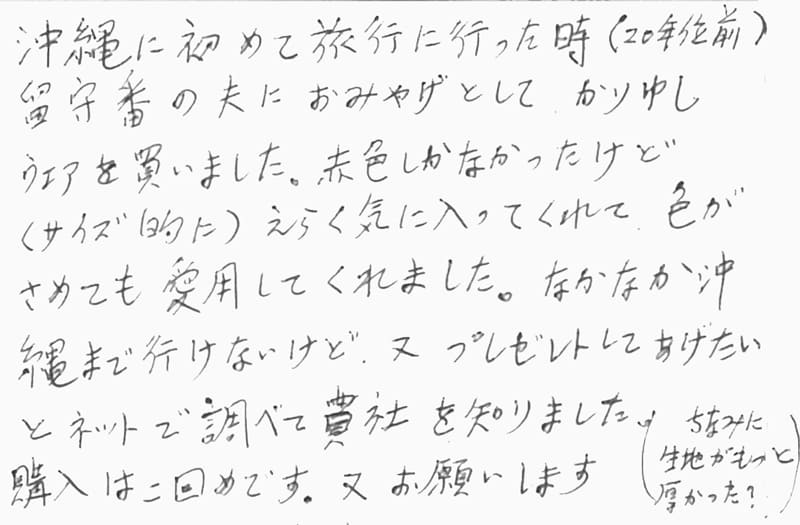 沖縄に初めて旅行に行った時(20年位前)
留守番の夫におみやげとして かりゆし
ウェアを買いました。赤色しかなかったけど
(サイズ的に)えらく気に入ってくれて、色が
さめても愛用してくれました。なかなか沖
縄まで行けないけど、又 プレゼントしてあげたい
とネットで調べて貴社を知りました。
購入は二回めです。又お願いします
(ちなみに
生地がもっと
厚かった?)